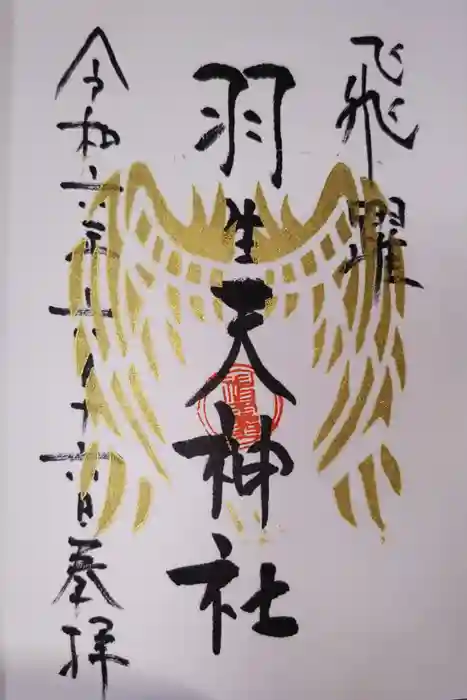 飛躍
羽生天神社
令和六年 月十六日 奉拝